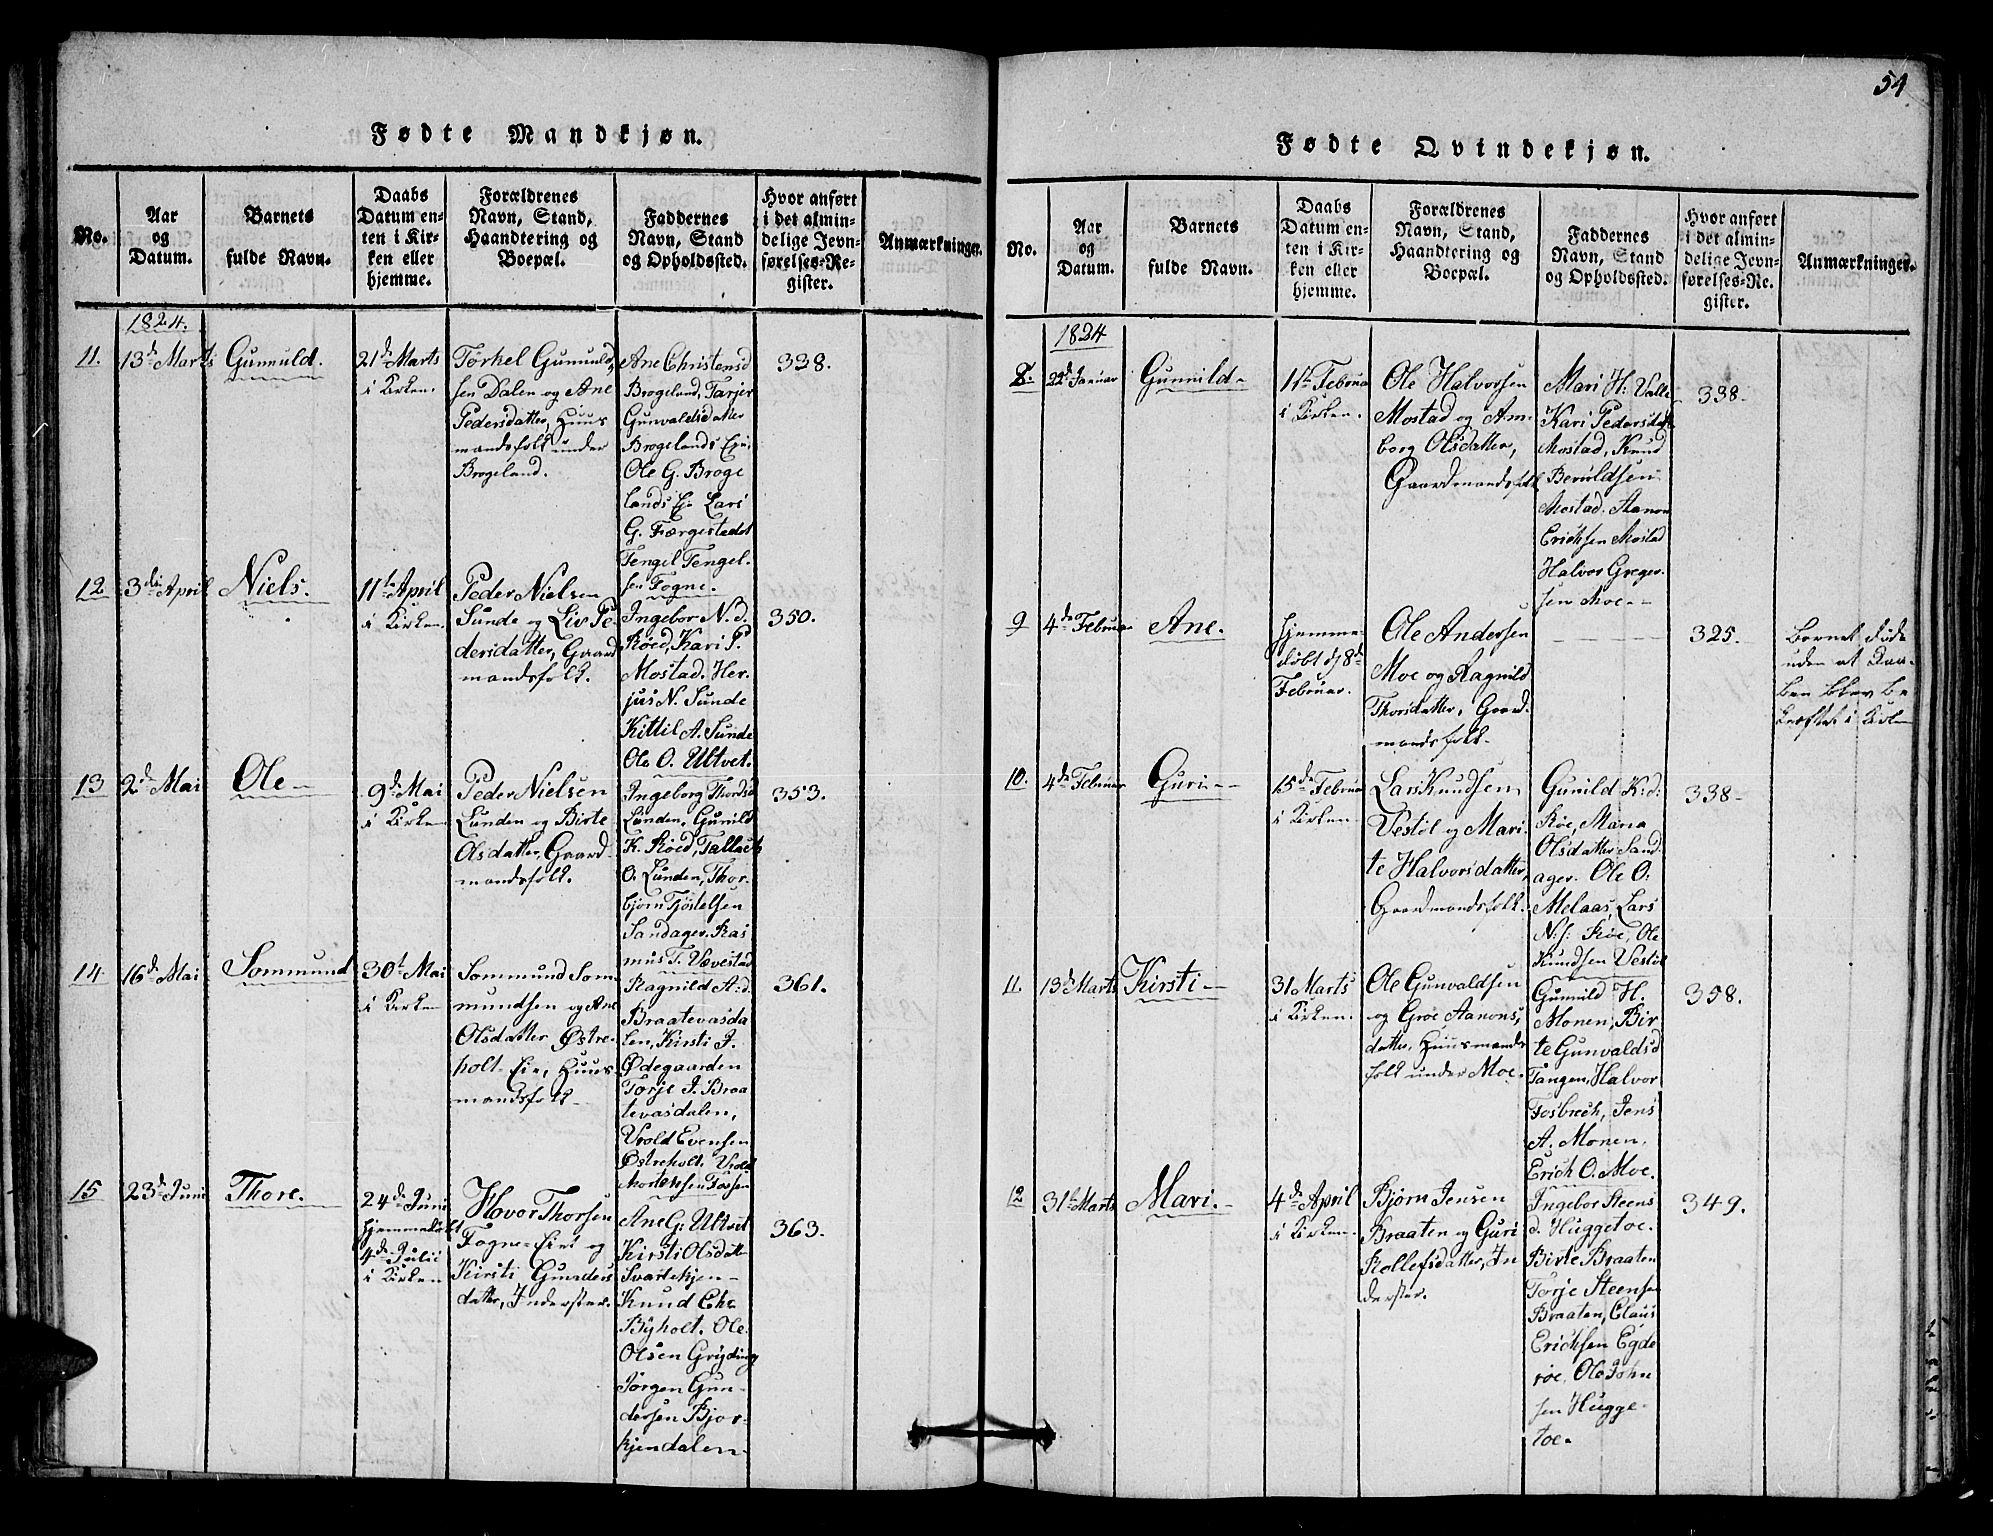 54
Fødte Mandkjøn.
No.
Aar
og
Datum.
Barnets
fulde Navn.
Daabs
Datum en-
ten i Kir-
ken eller
hjemme.
Forældrenes
Navn, Stand,
Haandtering og
Boepæl.
Faddernes
Navn, Stand
og Opholdssted.
Hvor anført
i det almin-
delige Jevn-
førelses-Re-
gister.
Anmærkninger.
1824.
11.
13d Marts
Gunnuld.
21d Marts
i Kirken.
Tørkel Gunuld-
sen Dalen og Ane
Pedersdatter, Huus
mandsfolk under
Brøgeland.
Ane Christensd
Brøgeland, Tarjer
Gunvaldsdatter
Brøgelands Eje.
Ole G. Brøge
lands Eje Lars
G. Færgestadet
Tengel Tengel-
sen Fogne.
338.
12
3die April
Niels.
11te April
i Kirken.
Peder Nielsen
Sunde og Liv Pe
dersdatter, Gaard
mandsfolk.
Ingebor N. d.
Røed, Kari P.
Mostad. Her-
jus N. Sunde
Kittil A. Sunde
Ole O. Ultvet.
350.
13
2d Mai
Ole
9d Mai
i Kirken
Peder Nielsen
Lunden og Birte
Olsdatter, Gaard-
mandsfolk.
Ingeborg Thordsd
Lunden, Gunild
K. Røed, Tallach
O. Lunden, Thor-
bjørn Tjøstelsen
Sandager. Ras
mus T. Vævestad
353.
14
16d Mai
Sommund
30t Mai
i Kirken
Sommund Som
mundsen og Ane
Olsdatter Østre-
holt-Eie, Huus-
mandsfolk
Ragnild A. d.
Braatevasda
len, Kirsti J.
Ødegaarden
Torje J. Braa
tevasdalen,
Vrold Evensen
Østreholt. Vrold
Mortensen Fossen
361.
15
23d Juni
Thore.
24d Juni
hjemmedøbt
4d Julii
i Kirken
Hovor Thorsen
Fogne-Eiet og
Kirsti Gunders
datter, Inderster.
Ane G. Ultvet
Kirsti Olsdatter
Svartekjen-
Knud Chr.
Byholt. Ole
Olsen Gryding
Jørgen Gun-
dersen Bjør-
kjendalen
363.
Fødte Qvindekjøn.
No.
Aar
og
Datum.
Barnets
fulde Navn.
Daabs
Datum en-
ten i Kir-
ken eller
hjemme.
Forældrenes
Navn, Stand,
Haandtering og
Boepæl.
Faddernes
Navn, Stand
og Opholdssted.
Hvor anført
i det almin-
delige Jevn-
førelses-Re-
gister.
Anmærkninger.
1824
8.
22d Januar
Gunnild
11te Februar
i Kirken.
Ole Halvorsen
Mostad og Am-
borg Olsdatter,
Gaardmandsfolk
Mari H: Valle
Kari Pedersdatter
Mostad, Knud
Beruldsen
Mostad. Aanon
Erichsen Mostad
Halvor Greger-
sen Moe.
338-
9
4de Februar
Ane.
hjemme-
døbt d 8d
Februar.
Ole Andersen
Moe og Ragnild
Thorsdatter, Gaard-
mandsfolk.
325.
Barnet døde
uden at Daa-
ben blev be
kræftet i Kirken
10.
4de Februar
Guri
15d Februar
i Kirken
Lars Knudsen
Vestøl og Mari-
te Halvorsdatter,
Gaardmandsfolk.
Gunild K: d:
Røe, Maria
Olsdatter Sand
ager. Ole O:
Melaas, Lars
N: s: Røe, Ole
Knudsen Vestøl
338-
11.
13d Marts
Kirsti
31 Marts
i Kirken.
Ole Gunvaldsen
og Groe Aanons,
datter, Huusmands
folk under Moe.
Gunnild H.
Monen, Bir
te Gunvaldsd
Tangen, Halvor
Fosbrech, Jens
A. Monen.
Erich O. Moe.
358.
12
31te Marts
Mari.
4de April
i Kirken.
Bjørn Jensen
Braaten og Guri
Rollefsdatter, In
derster.
Ingebor Steens
d. Huggetoe.
Birte Braaten
Torje Steensen
Braaten, Claus
Erichsen Egde
røe. Ole John
sen Hugge-
toe.
349.